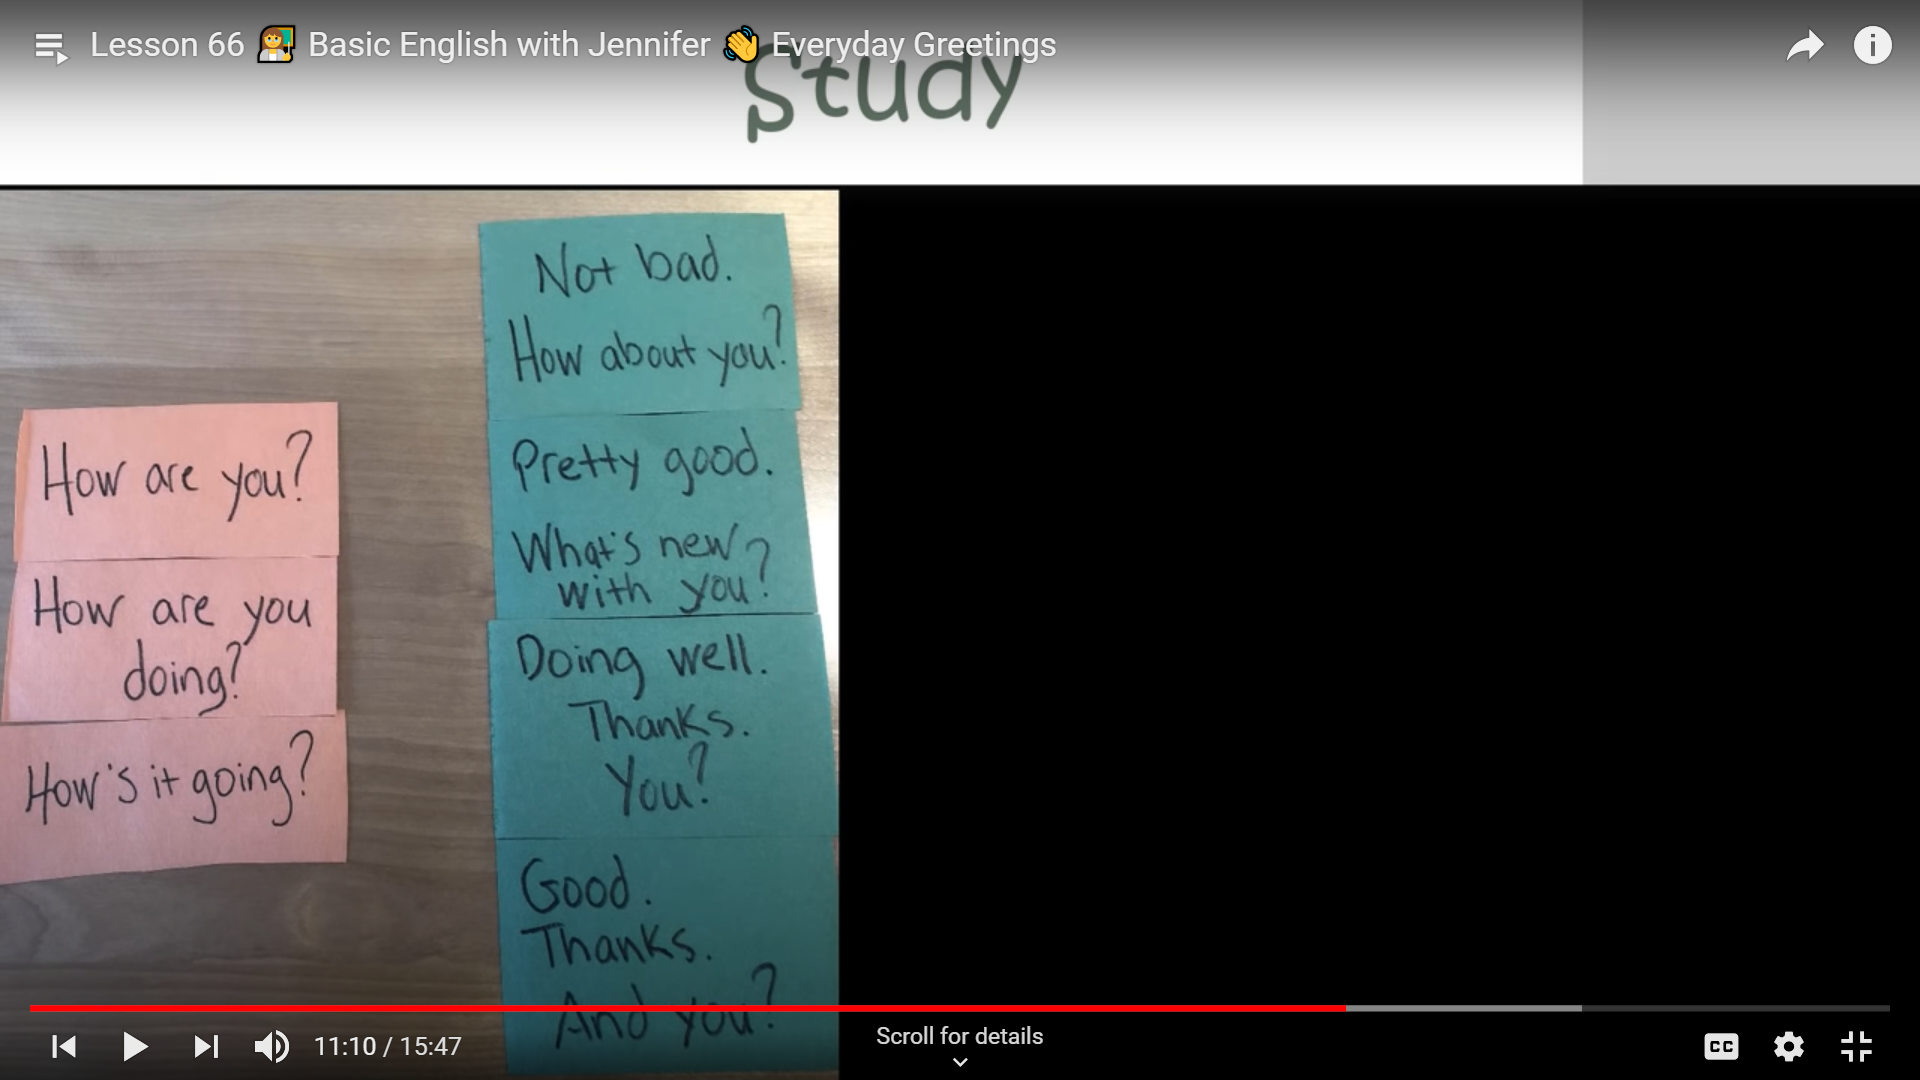 Lesson 66 👩‍🏫 Basic English with Jennifer 👋 Everyday Greetings
Study
How are you?
How are you
doing?
How's it going?
Not bad.
How about you?
Pretty good.
What's new
with you?
Doing well.
Thanks.
You?
Good.
Thanks.
And you?
11:10 / 15:47
Scroll for details
CC